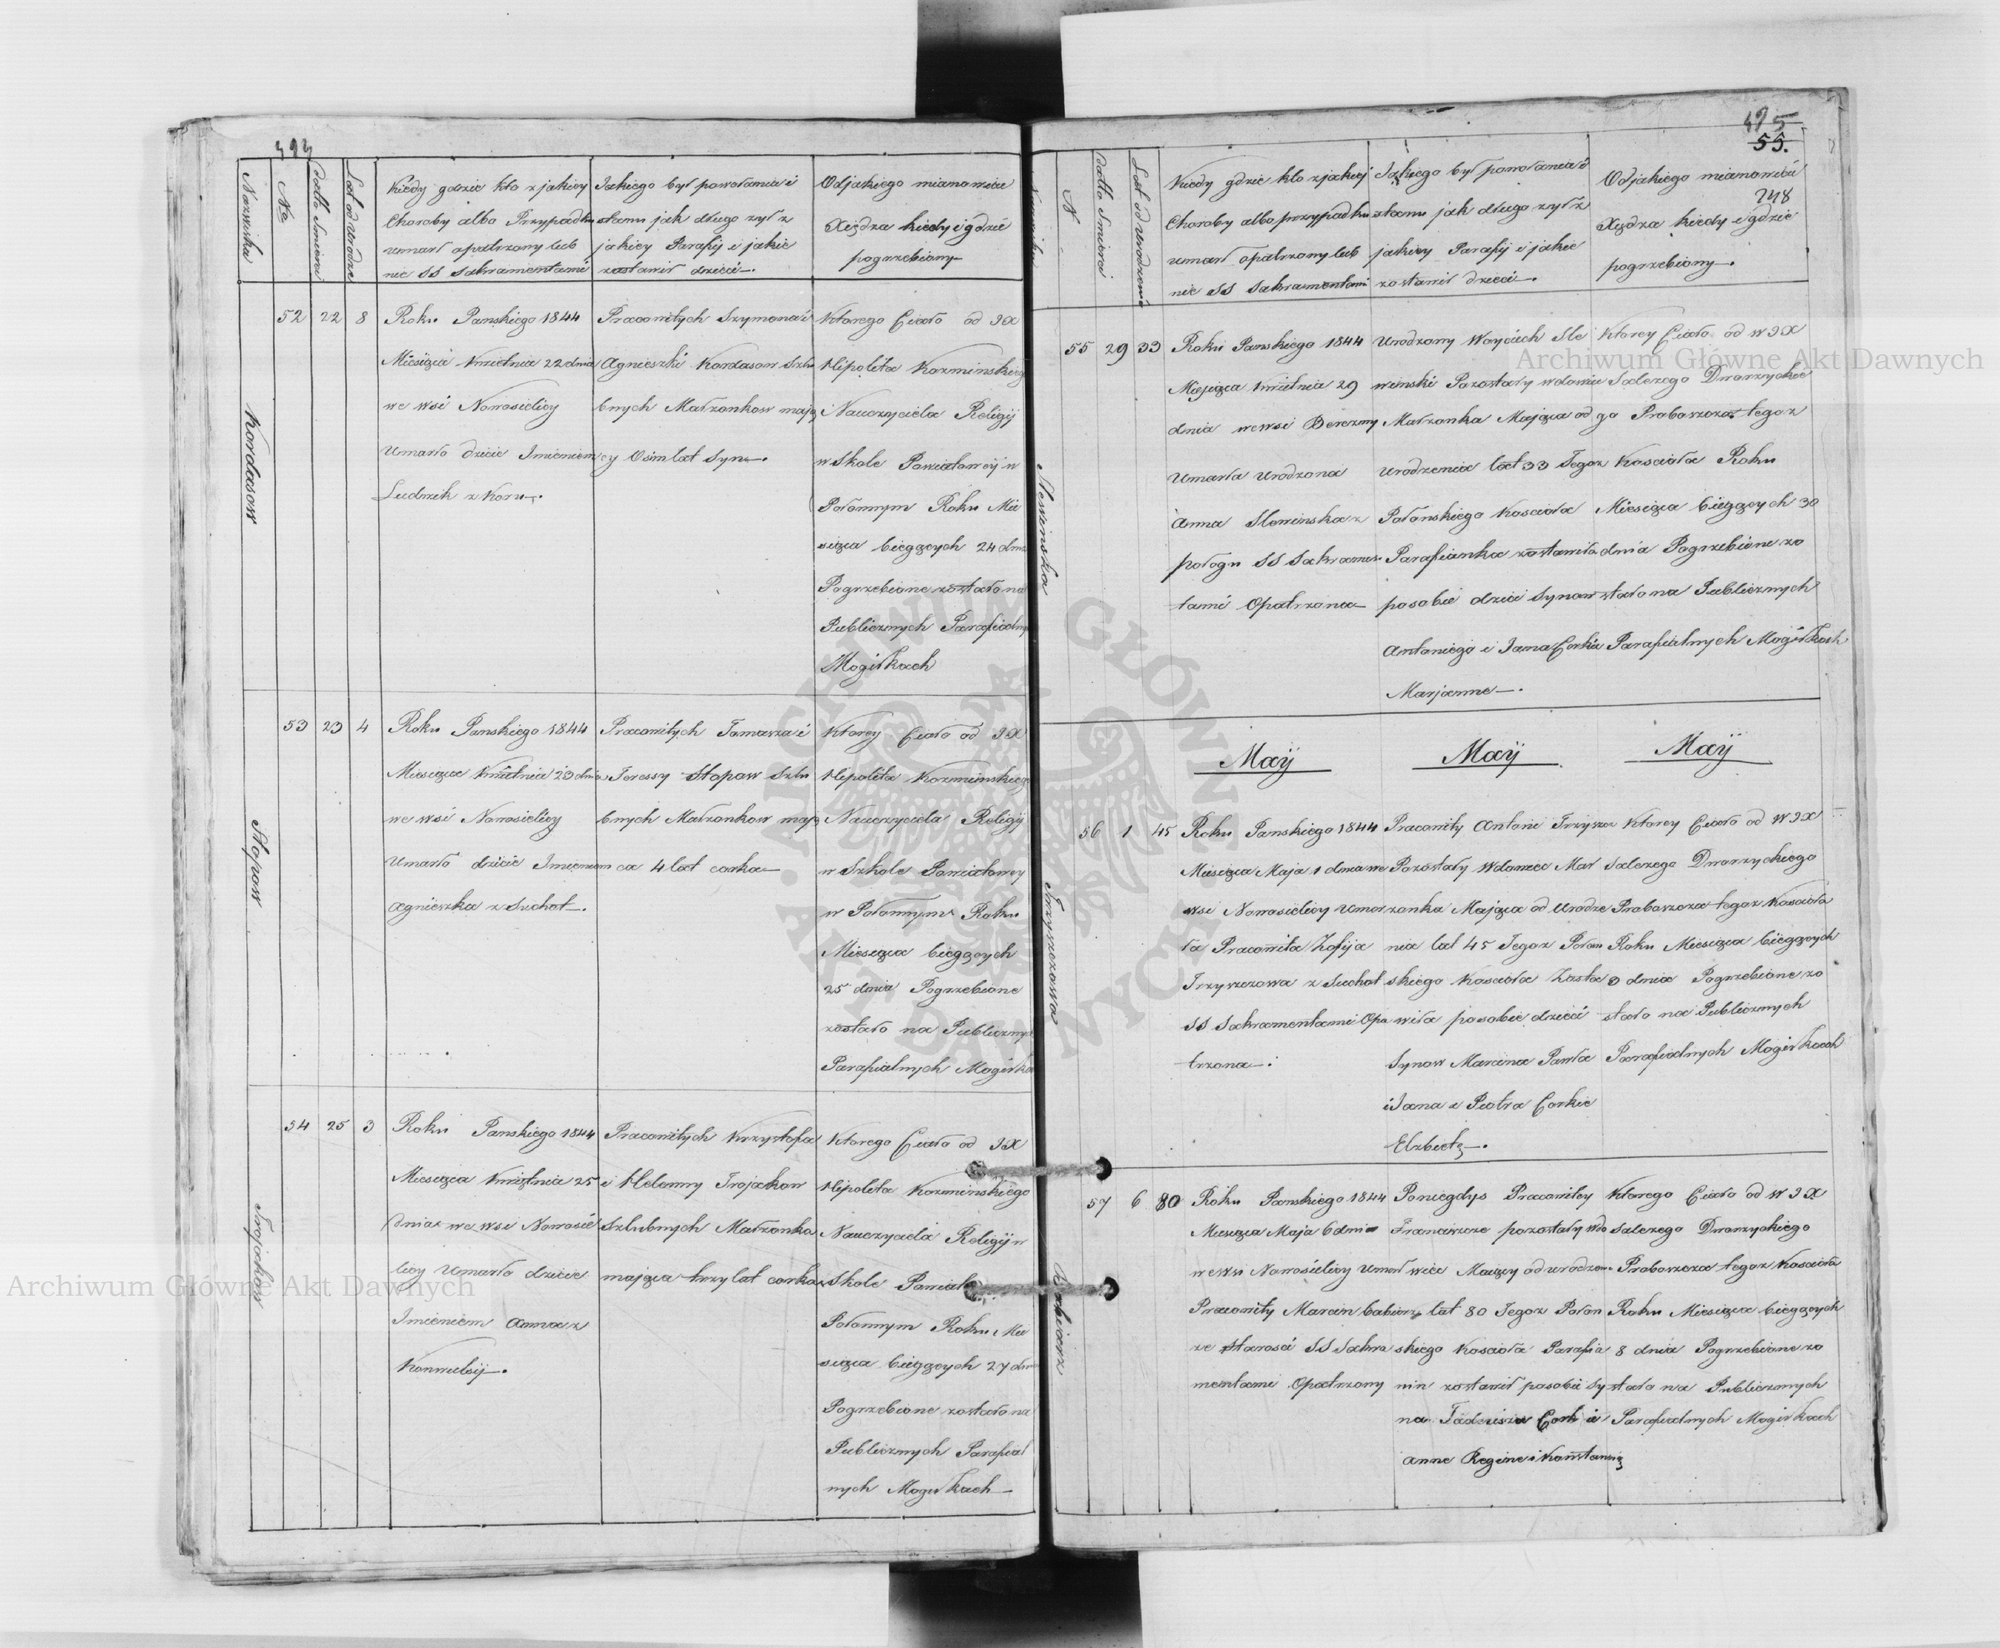 Nazwiska
№
Datta Smierci
Lat od Urodze
Kiedy gdzie kto z jakiey
Choroby albo Przypadku
umarł opatrzony lub
nie SS Sakramentami
Jakiego był powołania i
stanu jak długo zył z
jakiey Parafij i jakie
zostawił dzieci
Od jakiego mianowicie
Xiędza kiedy i gdzie
pogrzebiony
Kordasow
52 22 8
Roku Panskiego 1844
Miesiąca Kwietnia 22 dnia
we wsi Nowosielicy
Umarło dziecie Imieniem
Ludwik z Koru
Pracowitych Szymona i
Agnieszki Kordasow Szlu
bnych Małzonkow mają
cy Osim lat Syn
Ktorego Ciało od JX
Hipolita Kozminskieg
Nauczyciela Religij
w Skole Powiatowej w
Połonnym Roku Mie
siąca bieggcych 24 dnia
Pogrzebione zostało na
Publicznych Parafialny
Mogiłkach
Stopow
53 23 4
Roku Panskiego 1844
Miesiąca Kwietnia 23 dnia
we wsi Nowosielicy
Umarło dziecie Imieniem
Agnieszka z Suchot
Pracowitych Tomasza i
Teressy Stopow Szlu
bnych Małzonkow mają
ca 4 lat corka
Ktorey Ciało od JX
Hipolita Kozminskiego
Nauczyciela Religij
w Szkole Powiatowey
w Połonnym Roku
Miesiąca bieggcych
25 dnia Pogrzebione
zostało na Publicznych
Parafialnych Mogiłka
Trojakow
54 25 3
Roku Panskiego 1844
Miesiąca Kwietnia 25
dnia we wsi Nowosie
licy Umarło dziecie
Imieniem Anna z
Konwulsij
Pracowitych Krzysztofa
i Helenny Trojakow
Szlubnych Małzonko
mająca trzy lat corka
Ktorego Ciało od JX
Hipolita Kozminskiego
Nauczyciela Religij w
Skole Powiato
Połonnym Roku Mie
siąca bieggcych 27 dnia
Pogrzebione zostało na
Publicznych Parafial
nych Mogiłkach
495
55.
248
N
Datta Smierci
Lat od Urodzenia
Kiedy gdzie kto z jakiej
Choroby albo przypadku
umarł opatrzony lub
nie SS Sakramentami
Jakiego był powołania i
stanu jak długo zył z
jakiey Parafij i jakie
zostawił dzieci
Od jakiego mianowicie
Xiędza kiedy i gdzie
pogrzebiony
Slowinska
55 29 33
Roku Panskiego 1844
Miesiąca Kwietnia 29
dnia we wsi Berezny
Umarła Urodzona
Anna Slowinska z
połogu SS Sakramen
tami Opatrzona
Urodzony Woyciech Slo
winski Pozostały wdowiec
Małzonka Mająca od
urodzenia lat 33 Tegoz
Połonskiego Kosciola
Parafianka zostawiła
po sobie dzieci Synow
Antoniego i Jana Corkie
Marjanne
Ktorey Ciało od W JX
Salezego Dworzyckie
go Proboszcza tegoz
Kosciola Roku
Miesiąca bieggcych 30
dnia Pogrzebione zo
stało na Publicznych
Parafialnych Mogiłkach
Maÿ
Maÿ
Maÿ
Trzyszczowa
56 1 45
Roku Panskiego 1844
Miesiąca Maja 1 dnia we
wsi Nowosielicy Umar
ła Pracowita Zofija
Trzyszczowa z Suchot
SS Sakramentami Opa
trzona
Pracowity Antoni Trzyszcz
Pozostały Wdowiec Mał
zonka Mająca od Urodze
nia lat 45 Tegoz Połon
skiego Kosciola Zosta
wiła po sobie dzieci
Synow Marcina Pawła
i Jana i Piotra Corkie
Elzbietę
Ktorey Ciało od W JX
Salezego Dworzyckiego
Proboszcza tegoz Kosciola
Roku Miesiąca bieggcych
3 dnia Pogrzebione zo
stało na Publicznych
Parafialnych Mogiłkach
Babiarz
57 6 80
Roku Panskiego 1844
Miesiąca Maja 6 dnia
we wsi Nowosielicy Umarł
Pracowity Marcin Babiarz
ze starosci SS Sakra
mentami Opatrzony
Poniegdys Pracowitey
Franciszce pozostały wdo
wiec Maiący od urodzenia
lat 80 Tegoz Połon
skiego Kosciola Parafia
nin zostawił po sobie Sy
na Tadeusza Corki
Anne Regine i Konstancię
Ktorego Ciało od W JX
Salezego Dworzyckiego
Proboszcza tegoz Kosciola
Roku Miesiąca bieggcych
8 dnia Pogrzebione zo
stało na Publicznych
Parafialnych Mogiłkach
Archiwum Główne Akt Dawnych
Archiwum Główne Akt Dawnych
ARCHIWUM GŁÓWNE AKT DAWNYCH